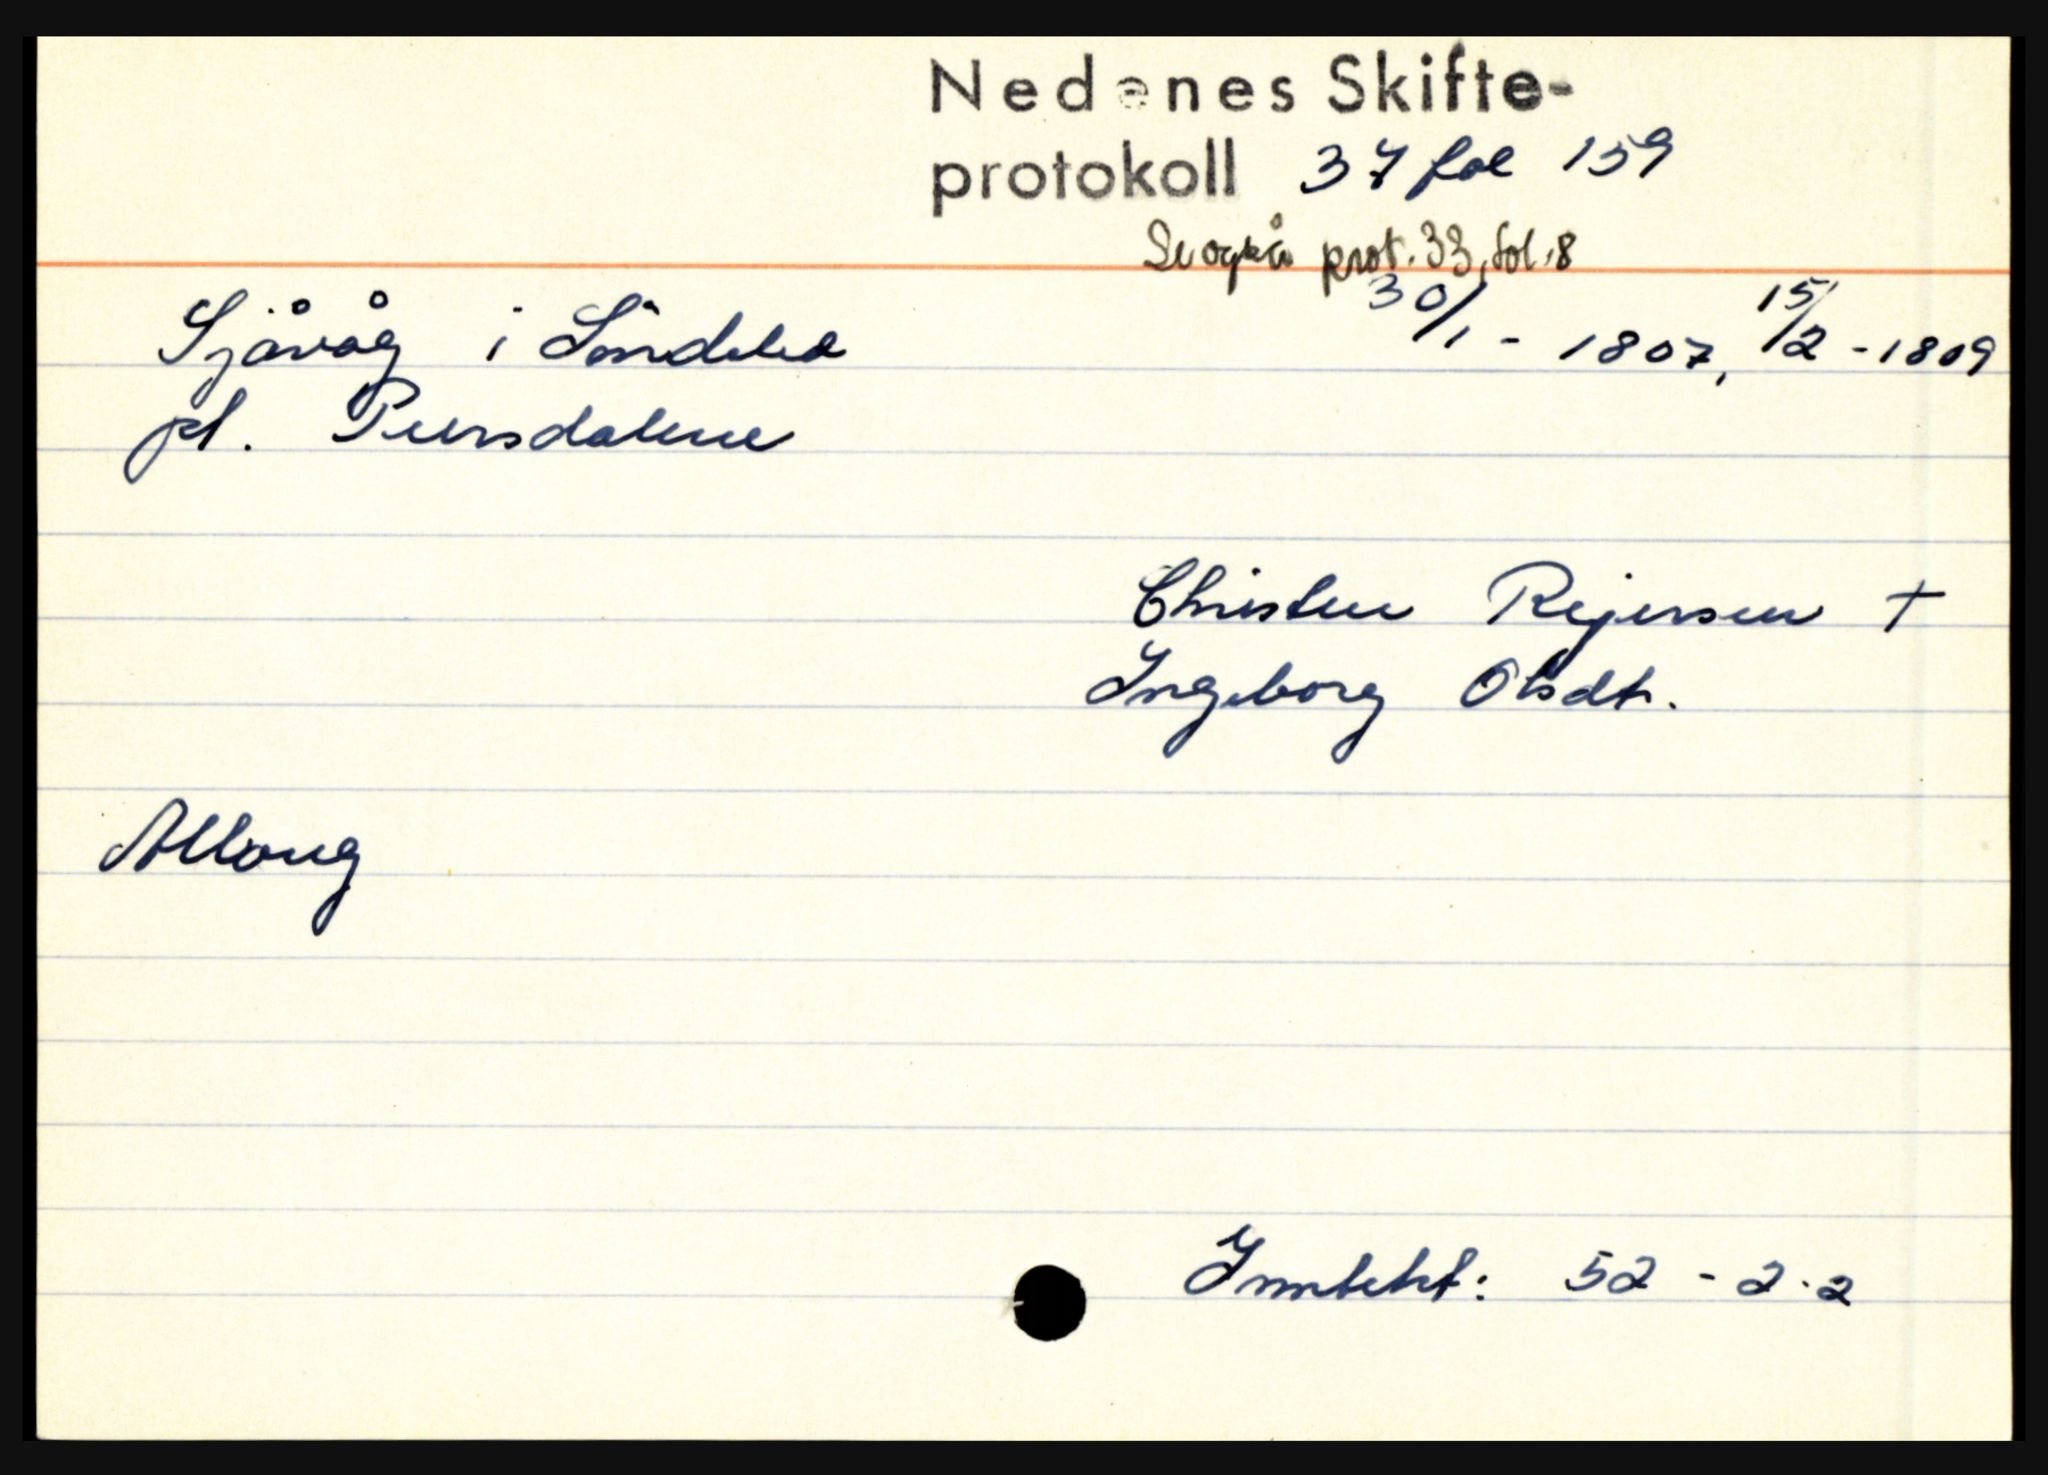 Nedenes Skifte-
protokoll 37 fol 159
Se også prot. 33, fol. 8
Sjåvåg i Søndeled 30/1 - 1807, 15/2 - 1809
pl. Peersdalene
Christen Rejersen †
Ingeborg Olsdt.
Alloug
Inntekt: 52 - 2 - 2